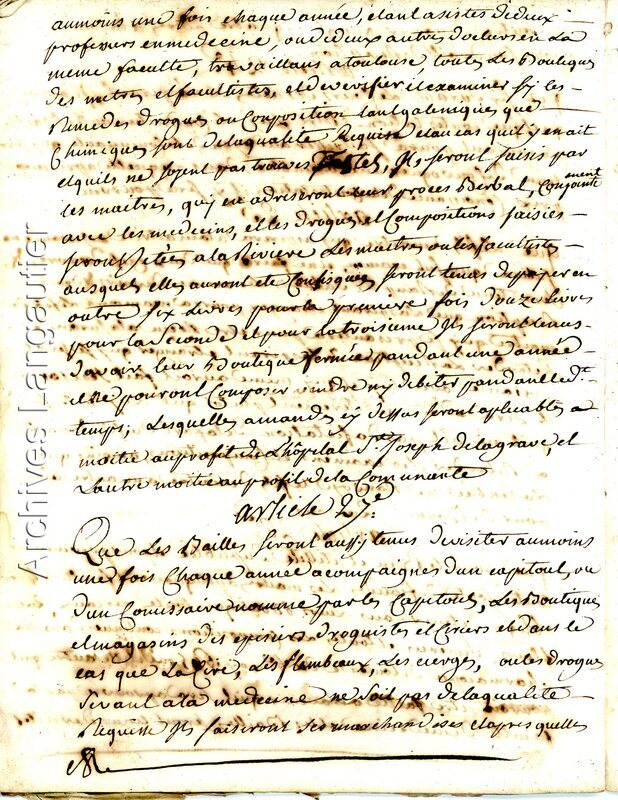 aumoins une fois chaque année, etant asistés de deux
professurs en medecine, ou de deux autres docteurs en La
meme faculté, travaillans a toulouse, toutes Les Boutiques
des metres et facultistes, et de verifier et examiner sy les
Remedes drogues ou Composition tant galeniques que
Chimiques sont de la qualité Requise et au cas quil y en ait
et quils ne soyent pas trouvés, Ils seront saisis par
les maitres, quy en adriseront leur procés Verbal, Conjointement
avec les medecins, et les drogues et Compositions saisies
seront Jetées a la Riviere Les maitres ou les facultistes
ausquels elles auront eté Confisquées seront tenus de payer en
outre six Livres pour la premiere fois douze Livres
pour la Seconde et pour la troisieme Ils seront tenus
davoire leur Boutique fermée pandant une année
et Ne pouront Composer vendre ny debiter pandant led.t
temps; Lesquelles amandes cy dessus seront aplicables a
moitié au profit de Lhôpital St. Joseph de la grave, et
Lautre moitié au profit de la Comunauté
article 27e.
Que Les Bailles seront aussy tenus de visiter aumoins
une fois Chaque année acompaignes dun capitoul, ou
dun Comissaire nommé par les Capitouls, Les Boutiques
et magasins des episiers droguistes et Ciriers et dans le
cas que La Cire, Les flambeaux, Les cierges, ou les drogues
servant a la medecine ne soit pas de la qualité
Requise Ils saiseront ses marchandises et apres quelles
Archives Langautier